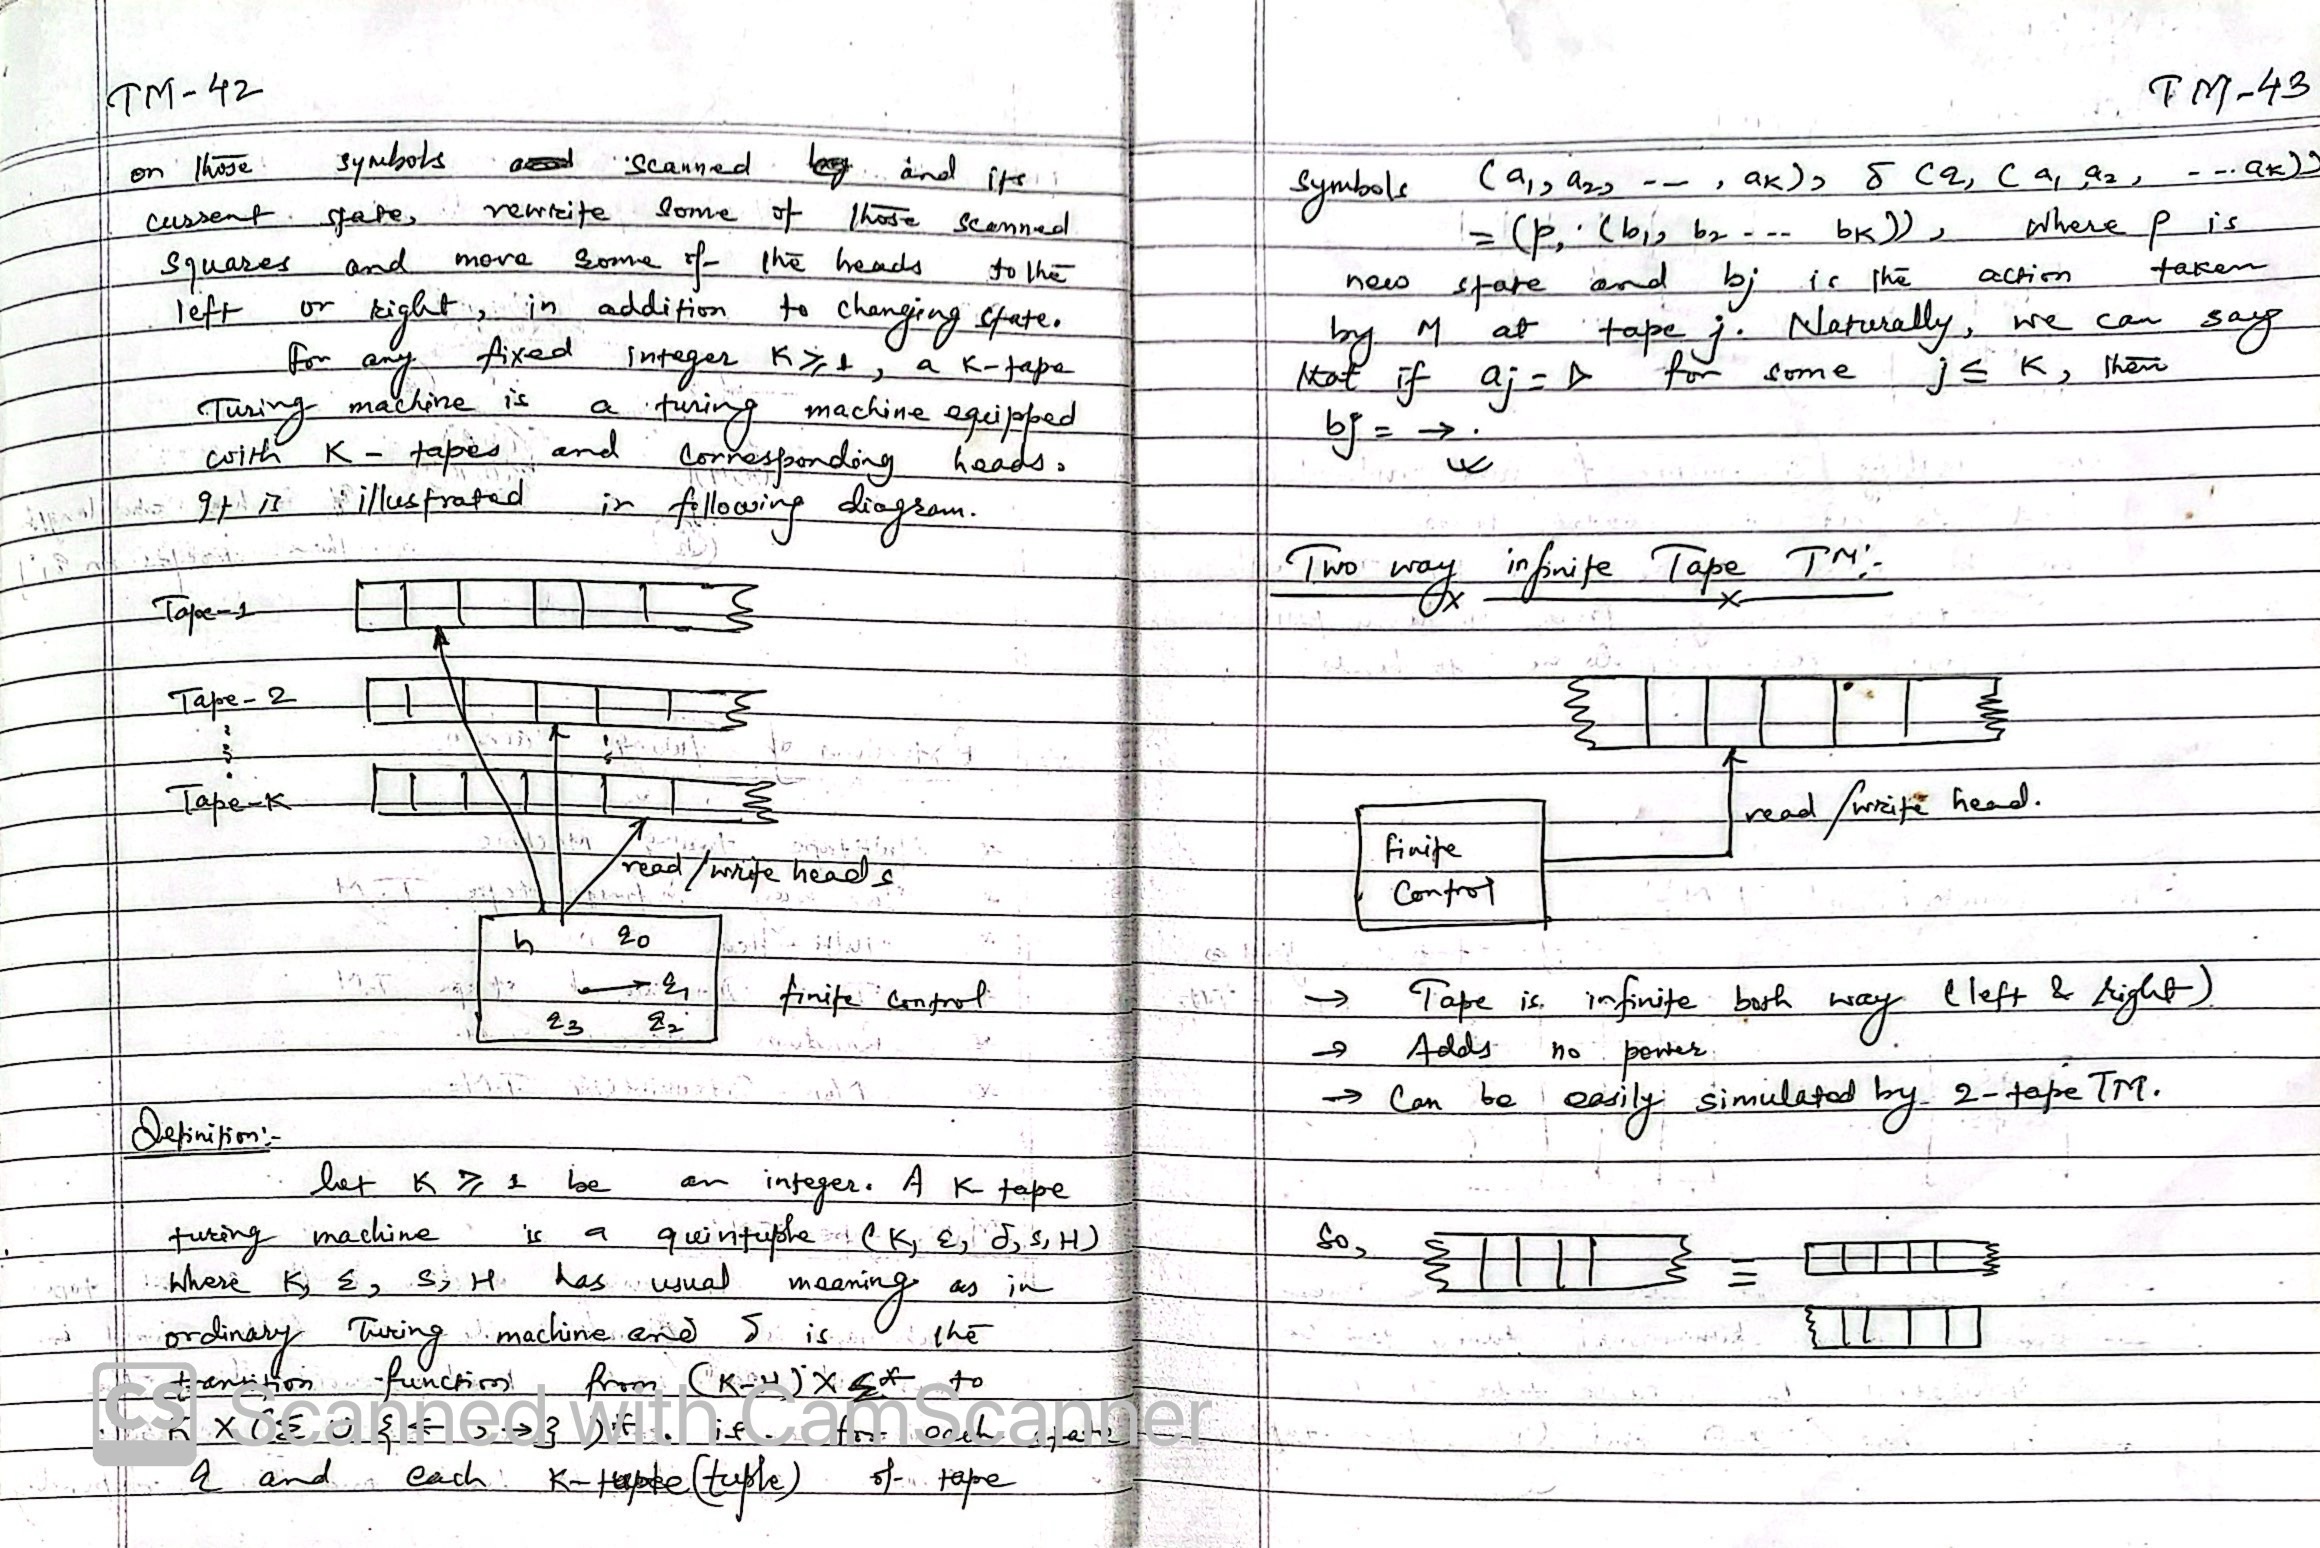 TM-42
on those symbols scanned and its
current state, rewrite some of those scanned
squares and move some of the heads to the
left or right, in addition to changing state.
for any fixed integer K ≥ 1, a K-tape
Turing machine is a turing machine equipped
with K-tapes and corresponding heads.
It is illustrated in following diagram.
Tape-1
Tape-2
Tape-K
read/write heads
h q0
q1
q3 q2
finite control
Definition:-
let K ≥ 1 be an integer. A K tape
turing machine is a quintuple (K, Σ, δ, s, H)
where K, Σ, s, H has usual meaning as in
ordinary Turing machine and δ is the
transition function from (K-H) X Σ* to
K X (Σ ∪ {←, →})*. ie. for each state
q and each K-tuple (tuple) of tape
TM-43
symbols (a1, a2, --- , aK), δ (q, (a1 a2, --- aK))
= (p, (b1, b2 --- bK)), where p is
new state and bj is the action taken
by M at tape j. Naturally, we can say
that if aj = ▷ for some j ≤ K, then
bj = →.
Two way infinite Tape TM:-
read/write head.
finite
Control
→ Tape is infinite both way (left & right)
→ Adds no power
→ Can be easily simulated by 2-tape TM.
So, ≡
CS Scanned with CamScanner